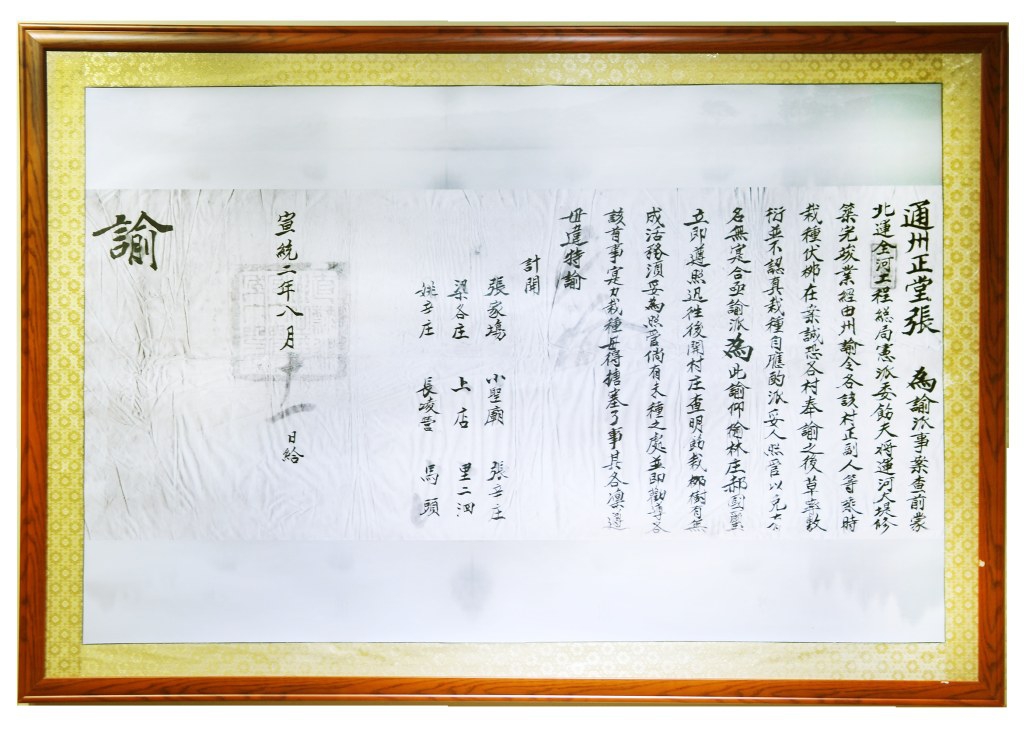 通州正堂張 為諭派事案查前蒙
北運全河工程總局憲派委飭天將運河大堤修
築完竣業經由州諭令各該村正副人等乘時
栽種伏柳在案誠恐各村奉諭之後草率敷
衍並不認真栽種自應酌派妥人照管以免
名無實合亟諭派為此諭仰榆林庄郝國聖
立即遵照迅往後開村庄查明所栽柳樹有無
成活務須妥為照管倘有未種之處並即勸導各
該首事實力栽種毋得搪塞了事其各凜遵
毋違特諭
計開
張家塲 小聖廟 張辛庄
梁各庄 上店 里二泗
姚辛庄 長凌營 馬頭
宣統二年八月十一日給
諭